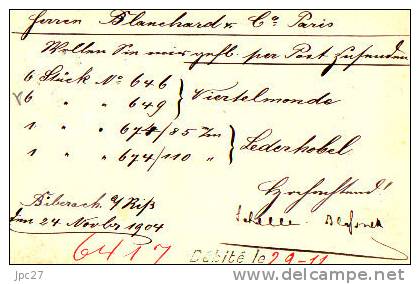 Herren Blanchard & Co Paris
Wollen Sie mir gefl. per Post zusenden
6 Stück No 646
6 " " 649 } Viertelmonde
1 " " 674/85 Zm
1 " " 674/110 " } Lederhobel
Hochachtend!
Biberach a/Riß
den 24 Novbr 1904
6417 Débité le 29-11
jpc27
delcampe.net